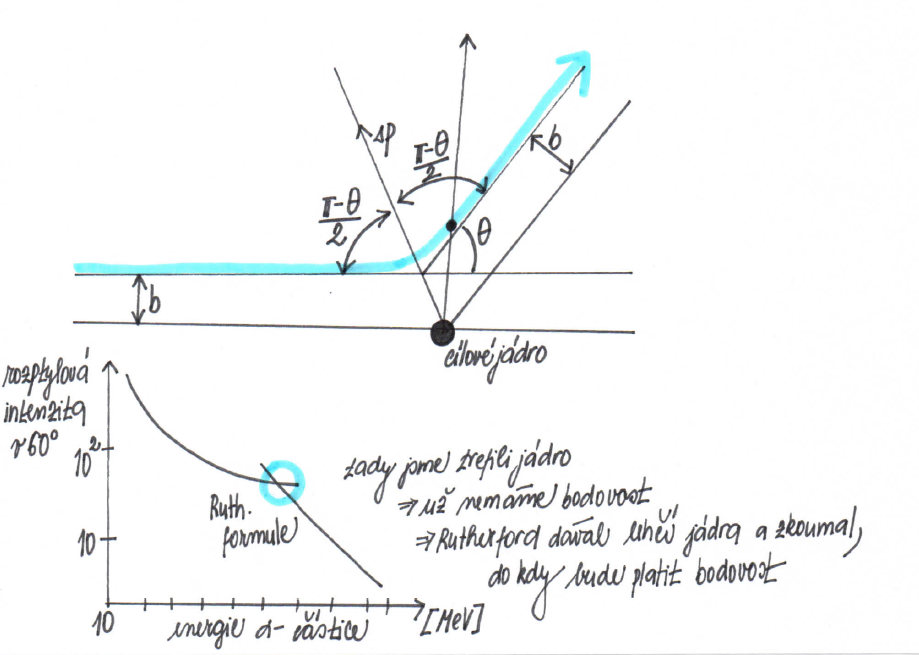 Δp
π-θ
2
π-θ
2
b
θ
b
cílové jádro
rozptylová
intenzita
v 60°
10²
10
Ruth.
formule
10
energie α-částice
[MeV]
tady jsme trefili jádro
⇒ už nemáme bodovost
⇒ Rutherford dával lehčí jádra a zkoumal,
do kdy bude platit bodovost